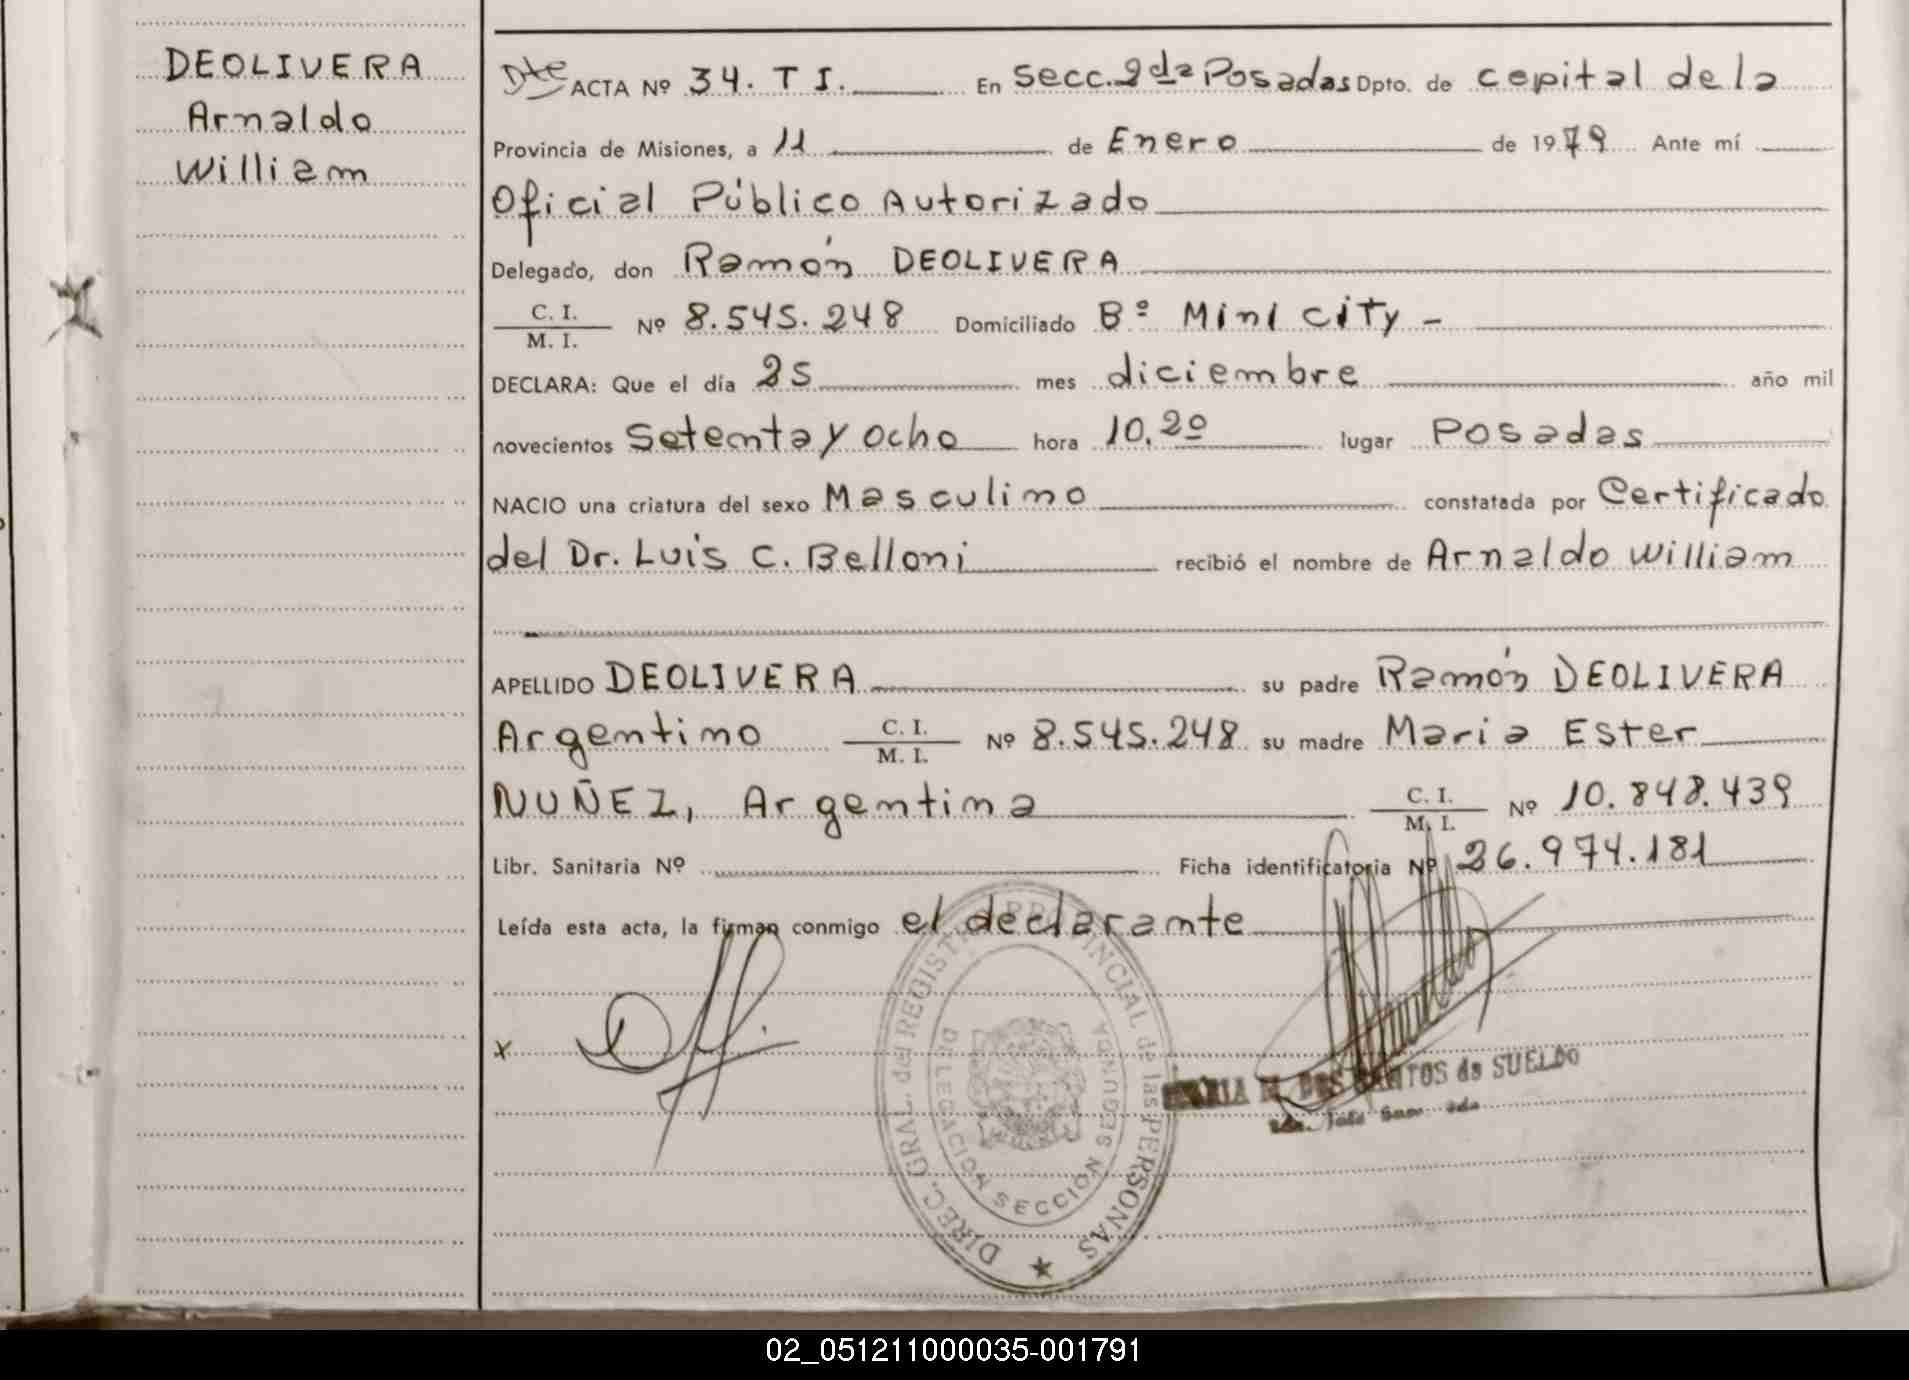 DEOLIVERA
Arnaldo
William
Dte ACTA Nº 34. T I. En Secc. 2da Posadas Dpto. de cepital de la
Provincia de Misiones, a 11 de Enero de 1979 Ante mí
Oficial Público Autorizado
Delegado, don Ramón DEOLIVERA
C. I.
M. I. Nº 8.545.248 Domiciliado Bº Mini City -
DECLARA: Que el día 25 mes diciembre año mil
novecientos Setenta y ocho hora 10.20 lugar Posadas
NACIO una criatura del sexo Masculino constatada por Certificado
del Dr. Luis C. Belloni recibió el nombre de Arnaldo William
APELLIDO DEOLIVERA su padre Ramón DEOLIVERA
Argentino C. I. M. I. Nº 8.545.248 su madre Maria Ester
NUÑEZ, Argentina C. I. M. I. Nº 10.848.439
Libr. Sanitaria Nº Ficha identificatoria Nº 26.974.181
Leída esta acta, la firman conmigo el declarante
x
DIREC. GRAL. del REGISTRO PROVINCIAL de las PERSONAS
DELEGACION SECCION SEGUNDA
MARIA DOS SANTOS de SUELDO
02_051211000035-001791